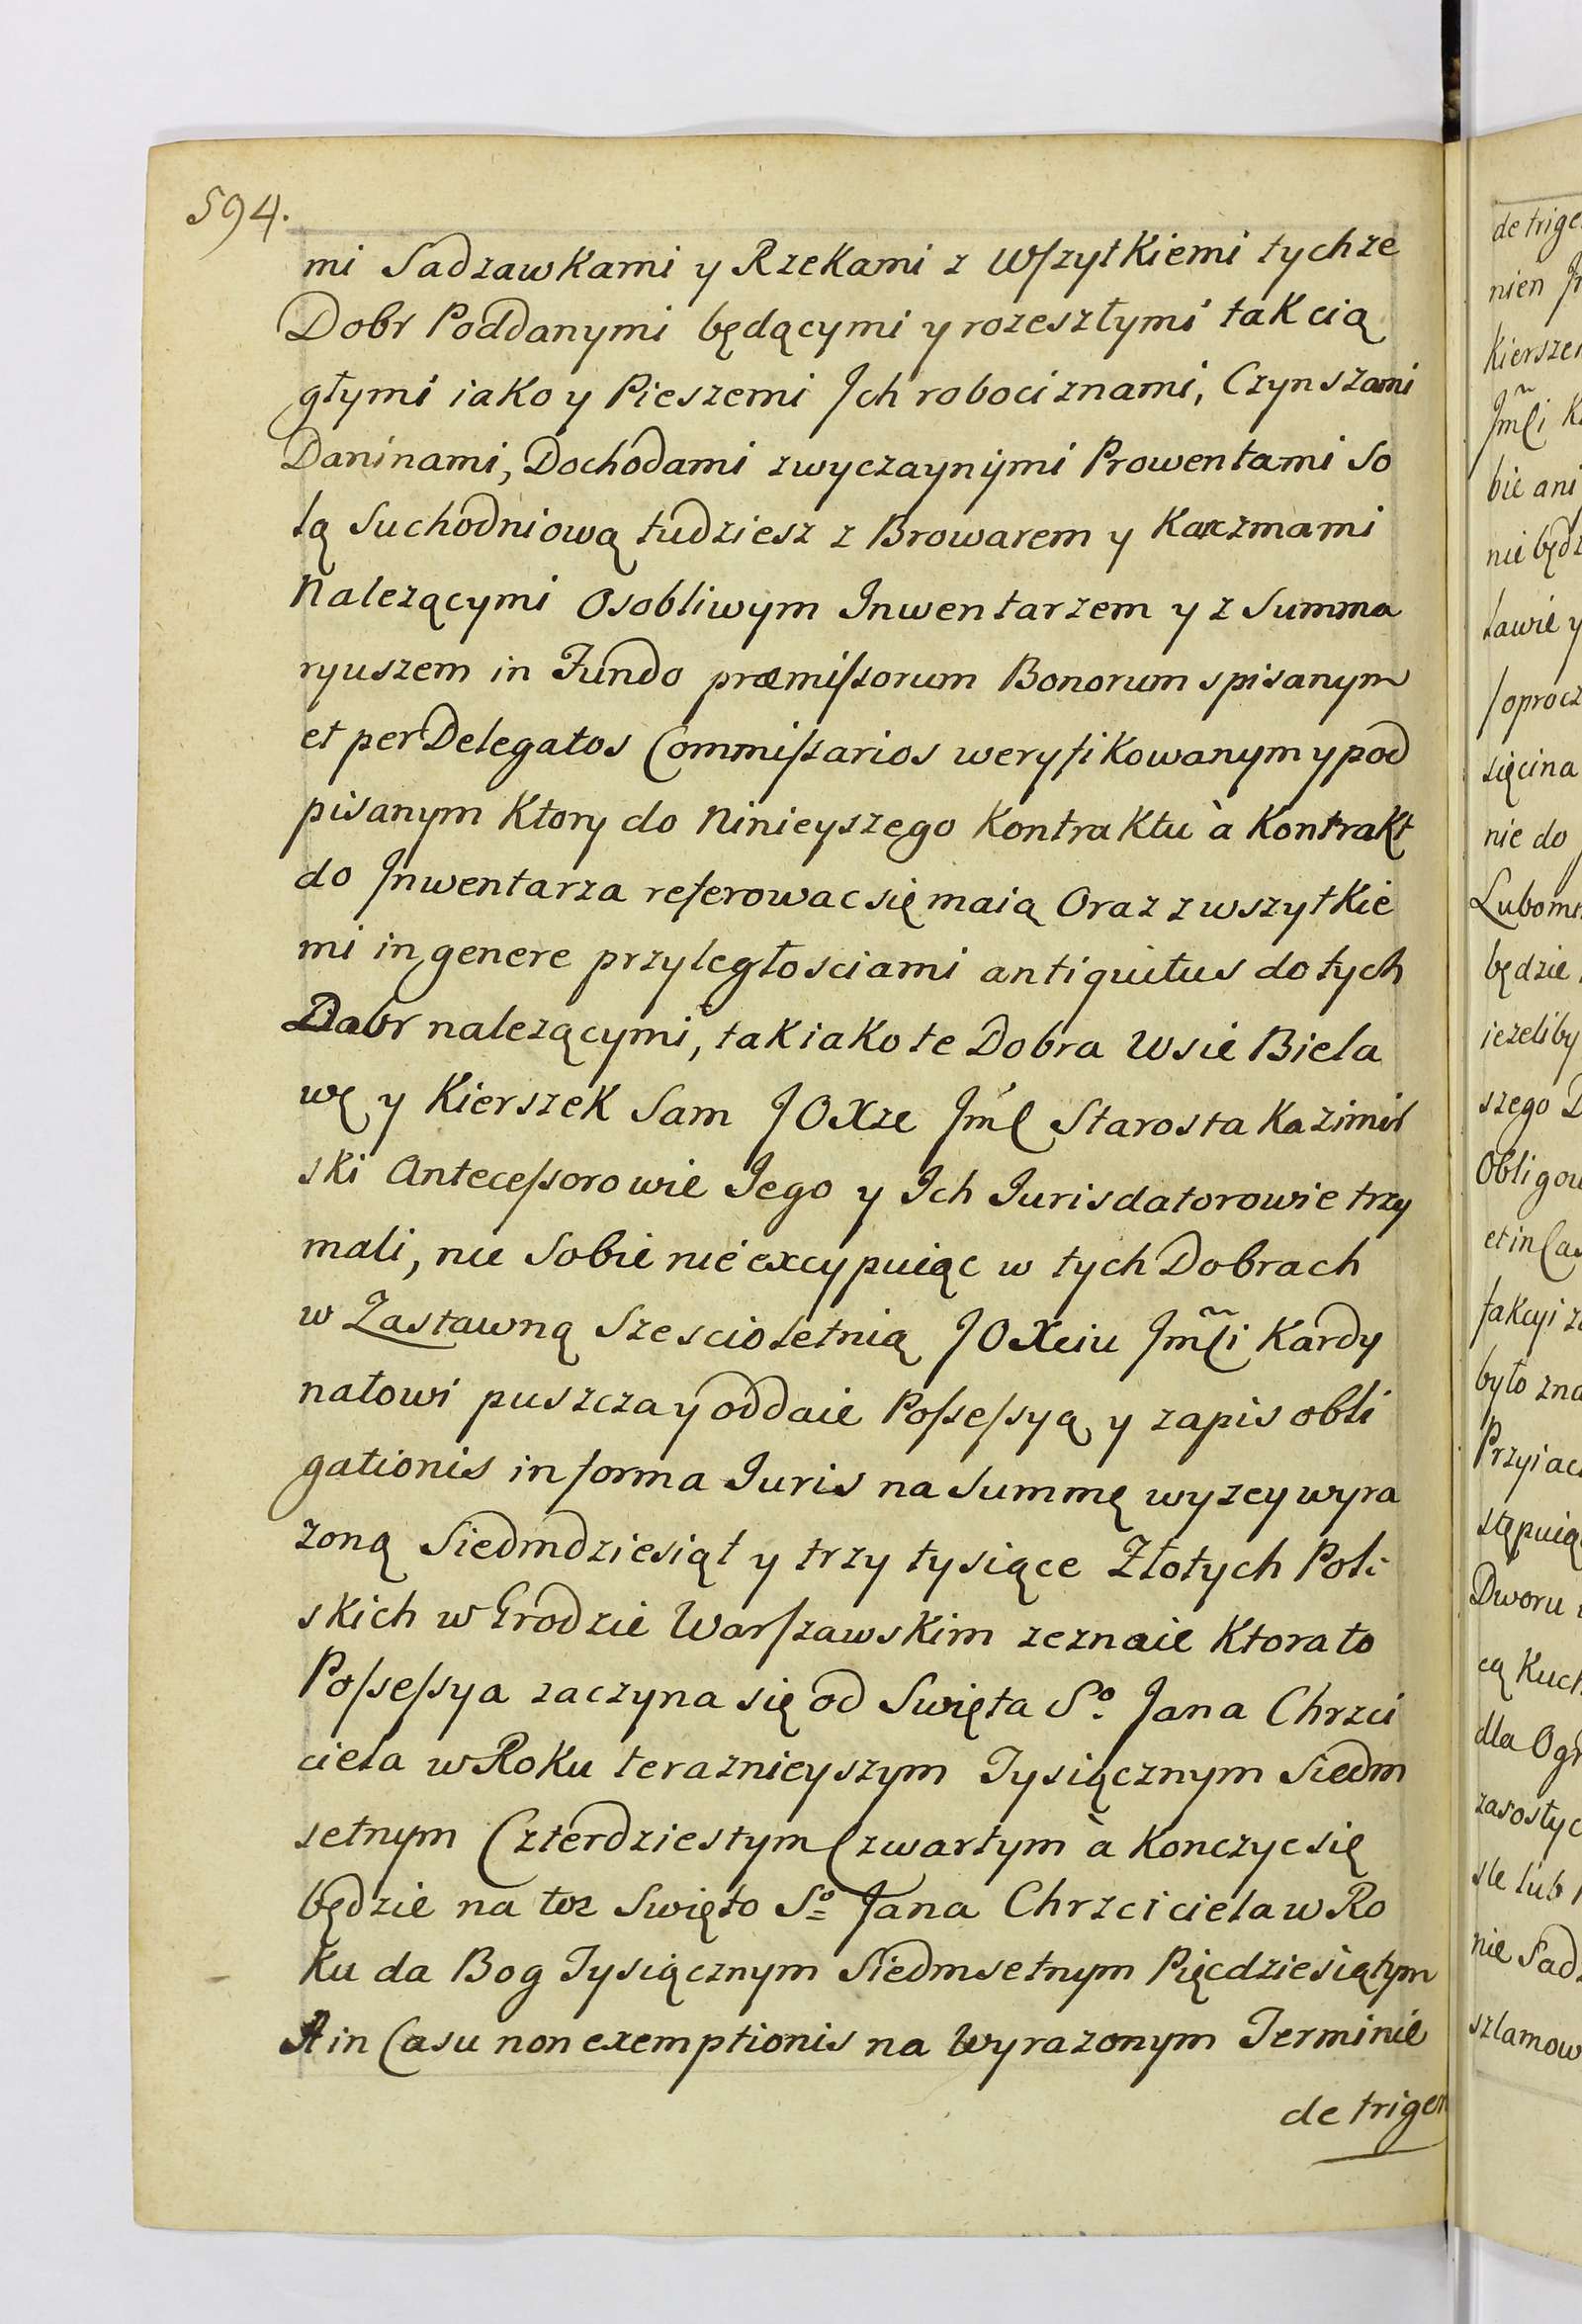 594.
mi Sadzawkami y Rzekami z Wszytkiemi tychze
Dobr Poddanymi będącymi y rozeszłymi tak cią
głymi iako y Pieszemi Ich robociznami, Czynszami
Daninami, Dochodami zwyczaynymi Prowentami So
lą Suchodniową tudziesz z Browarem y Karczmami
Nalezącymi Osobliwym Inwentarzem y z Summa
ryuszem in Fundo præmissorum Bonorum spisanym
et per Delegatos Commissarios weryfikowanym y pod
pisanym Ktory do Ninieyszego Kontraktu à Kontrakt
do Inwentarza referowac się maią Oraz z wszytkie
mi in genere przyległosciami antiquitus do tych
Dobr nalezącymi, tak iako te Dobra Wsie Biela
wę y Kierszek Sam JOXze Jmć Starosta Kazimir
ski Antecessorowie Jego y Ich Jurisdatorowie trzy
mali, nic Sobie nie excypuiąc w tych Dobrach
w Zastawną Szescioletnią JOXciu Jm̃ci Kardy
nałowi puszcza y oddaie Possessyą y zapis obli
gationis in forma Juris na Summę wyzey wyra
zoną Siedmdziesiąt y trzy tysiące Złotych Pol-
skich w Grodzie Warszawskim zeznaie Ktora to
Possessya zaczyna się od Swięta Sº Jana Chrzci
ciela w Roku teraznieyszym Tysiącznym Siedm
setnym Czterdziestym Czwartym à Konczyc się
będzie na toz Swięto Sº Jana Chrzciciela w Ro
ku da Bog Tysiącznym Siedmsetnym Pięcdziesiątym
A in Casu non exemptionis na Wyrazonym Terminie
de trigen
de trige
nien
Kiersze
Jm̃ci
bie ani
nie będz
tawie y
oprocz
sięcina
nie do
Lubom
będzie
iezeliby
szego
Obligow
et in Cas
fakcyi
było zna
Przyiac
stępuią
Dworu
cą Kuch
dla Ogr
nie Sad
szlamow